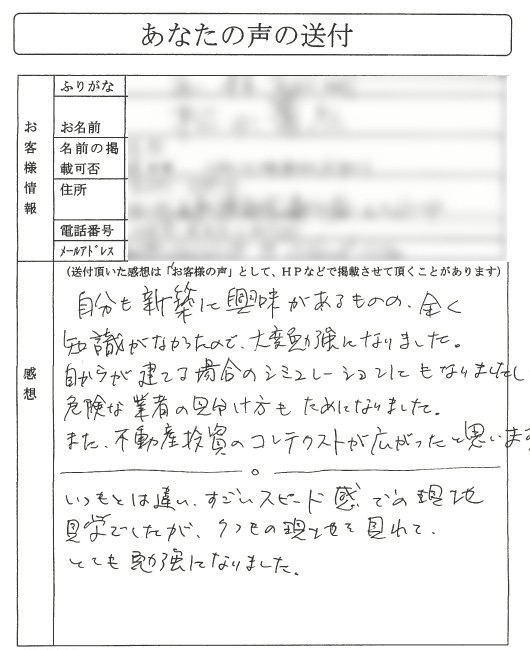 あなたの声の送付
お客様情報
ふりがな
お名前
名前の掲
載可否
住所
電話番号
メールアドレス
感想
(送付頂いた感想は「お客様の声」として、HPなどで掲載させて頂くことがあります)
自分も新築に興味があるものの、全く
知識がなかったので、大変勉強になりました。
自分が建てる場合のシミュレーションにもなりましたし
危険な業者の見分け方もためになりました。
また、不動産投資のコンテクストが広がったと思います
いつもとは違い、すごいスピード感での現地
見学でしたが、クつもの現地を見れて、
とても勉強になりました。